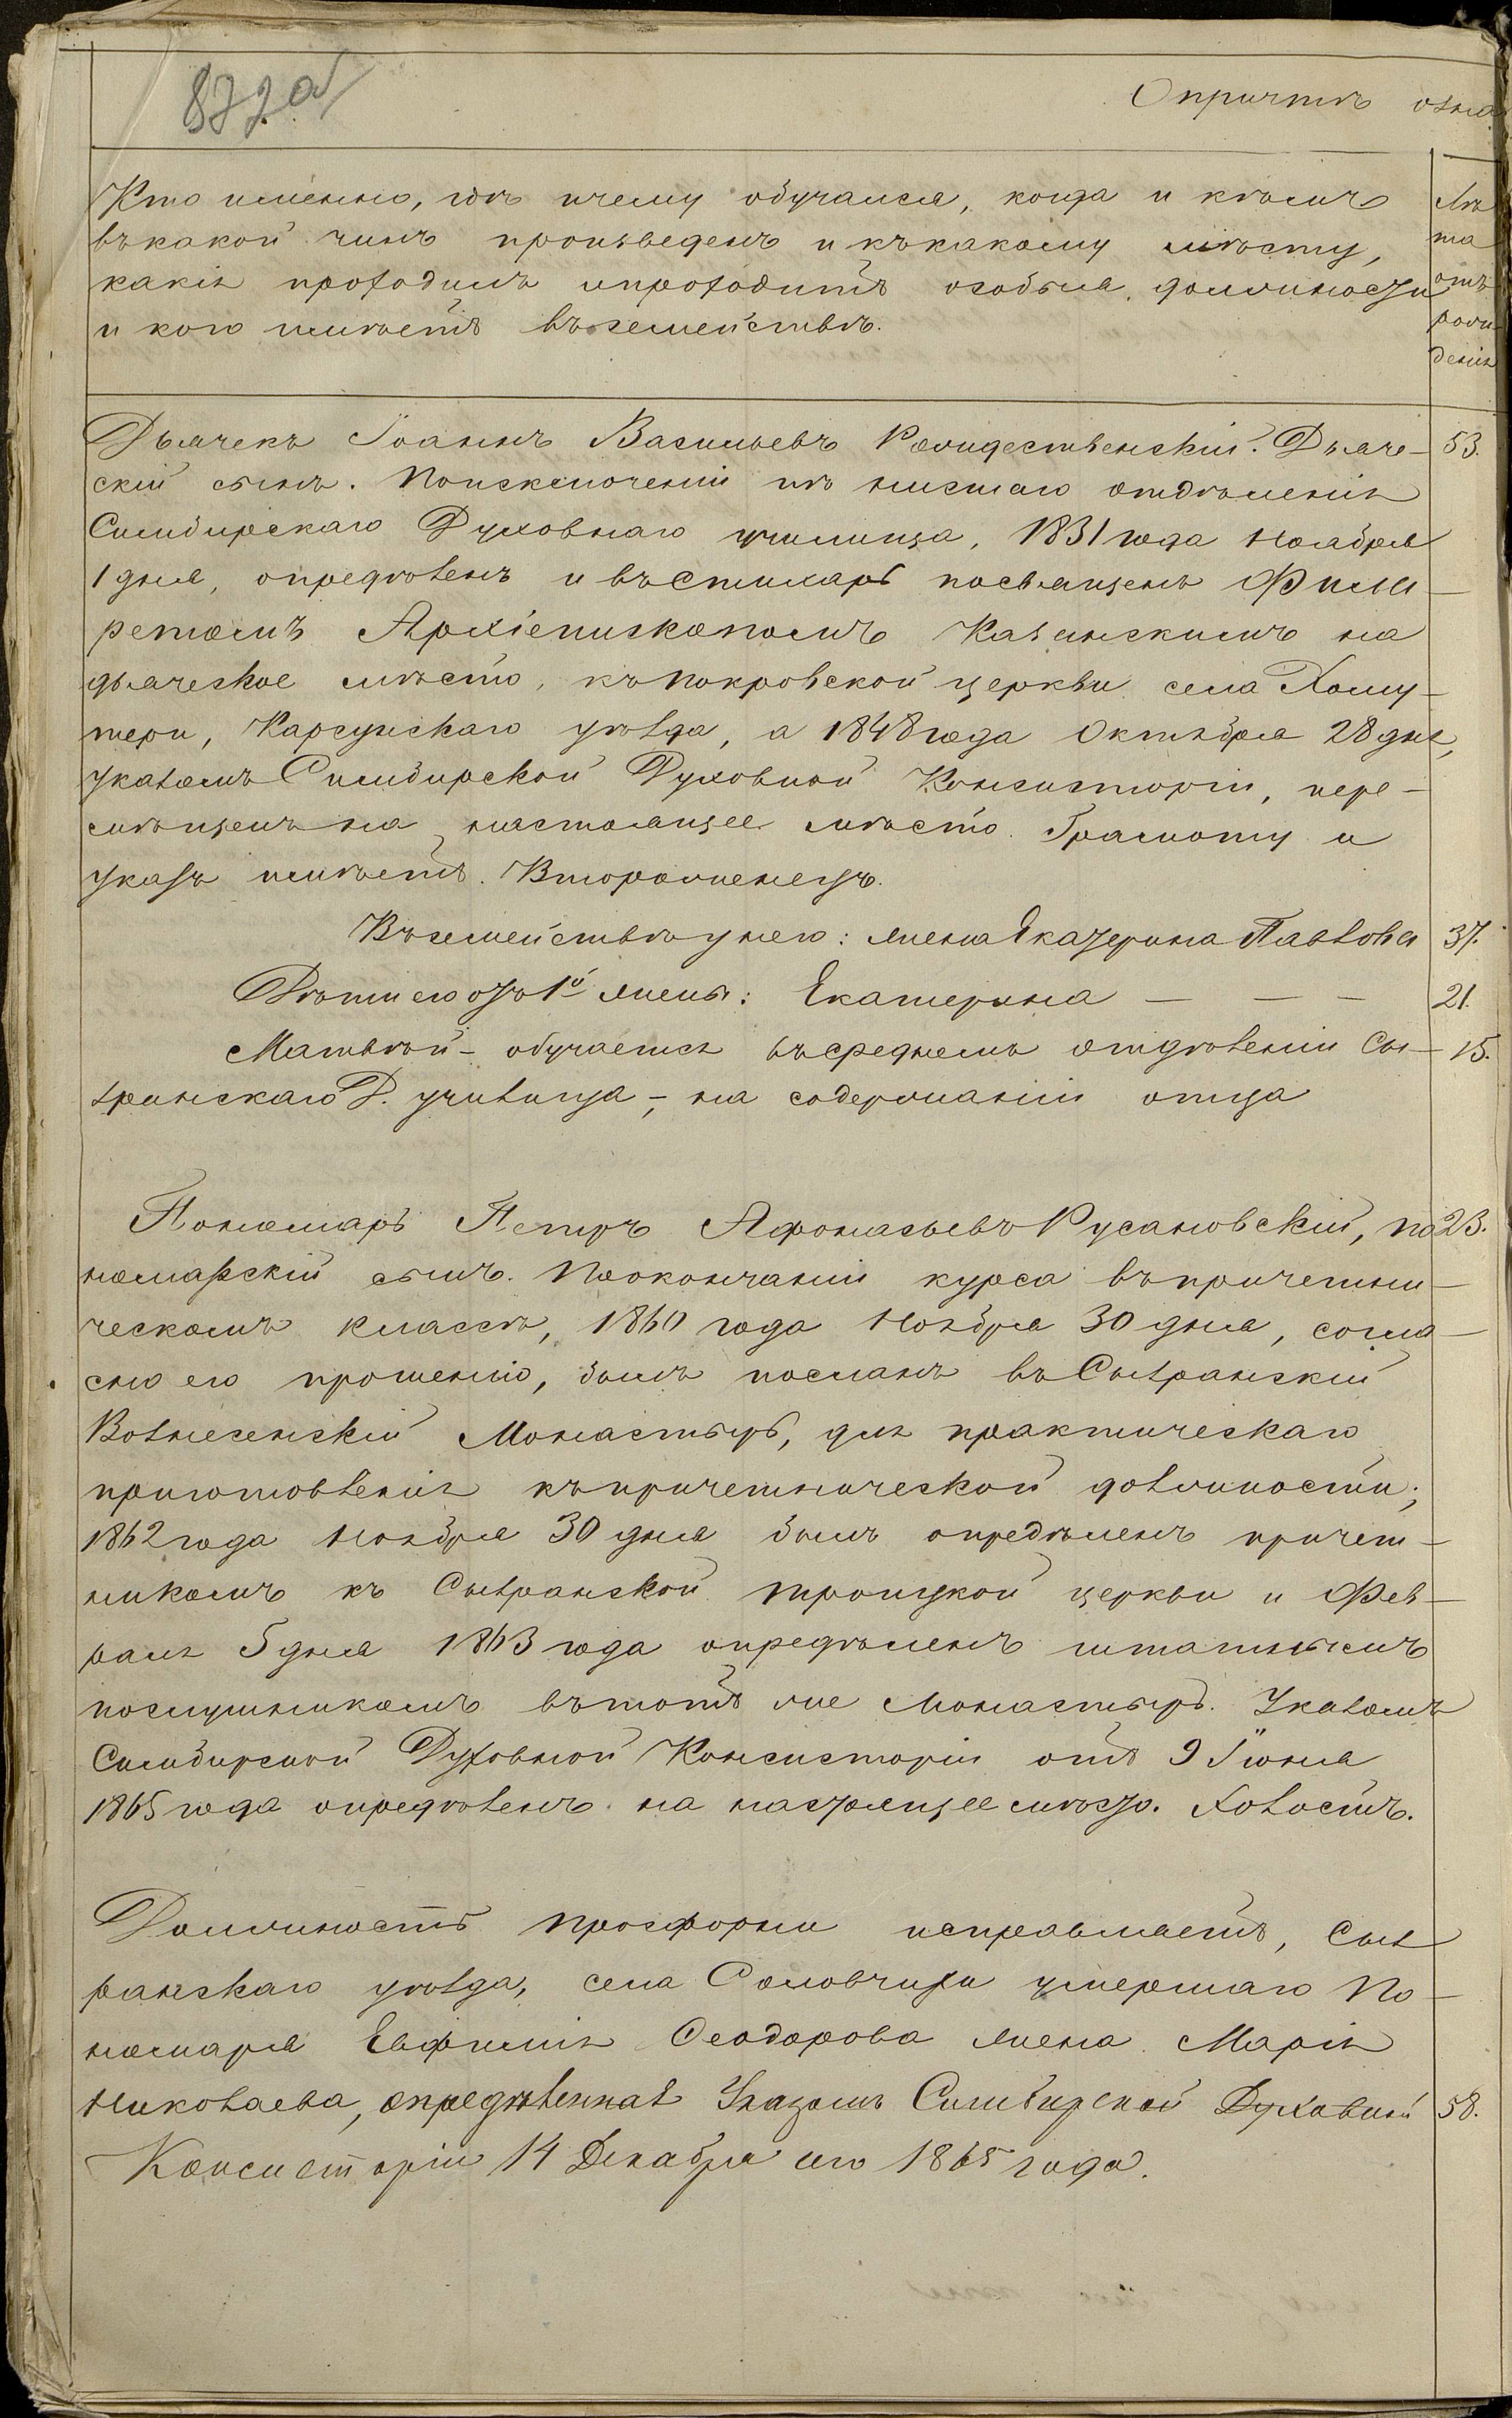 872 об
О причтѣ озна
Кто именно, гдѣ и чему обучался, когда и кѣмъ
въ какой чинъ произведенъ и къ какому мѣсту,
какія проходилъ и проходитъ особыя должности
и кого имѣетъ въ семействѣ.
Лѣ
та
отъ
рож-
денія
Дьячекъ Іоаннъ Васильевъ Рождественскій. Дьяче- 53.
скій сынъ. По исключеніи из низшаго отдѣленія
Симбирскаго Духовнаго училища, 1831 года Ноября
1 дня, опредѣленъ и въ стихарь посвященъ Фила-
ретомъ Архіепископомъ Казанскимъ на
дьяческое мѣсто, къ Покровской церкви села Хому-
тери, Карсунскаго уѣзда, а 1848 года Октября 28 дня,
указомъ Симбирской Духовной Консисторіи, пере-
мѣщенъ на настоящее мѣсто. Грамоту и
указъ имѣетъ. Второженецъ.
Въ семействѣ у него: жена Екатерина Павлова 37.
Дѣти его отъ 1й жены: Екатерина — — — 21.
Матвѣй - обучается въ среднемъ отдѣленіи Сы- 15.
зранскаго Д. училища -, на содержаніи отца
Пономарь Петръ Афонасьевъ Русановскій, по 23.
номарскій сынъ. По окончаніи курса въ причетни-
ческомъ классѣ, 1860 года Ноября 30 дня, согла-
сно его прошенію, былъ посланъ въ Сызранскій
Вознесенскій Монастырь, для практическаго
приготовленія къ причетнической должности;
1862 года Ноября 30 дня былъ опредѣленъ причет-
никомъ къ Сызранской троицкой церкви и Фев-
раля 5 дня 1863 года опредѣленъ штатнымъ
послушникомъ въ тотъ же Монастырь. Указомъ
Симбирской Духовной Консисторіи отъ 9 Іюня
1865 года опредѣленъ на настоящее мѣсто. Холостъ.
Должность просфорни исправляетъ, Сыз
ранскаго уѣзда, села Соловчихи умершаго По-
номаря Евфимія Ѳеодорова жена Марія
Николаева, опредѣленная Указомъ Симбирской Духовной 58.
Консисторіи 14 Декабря сего 1865 года.